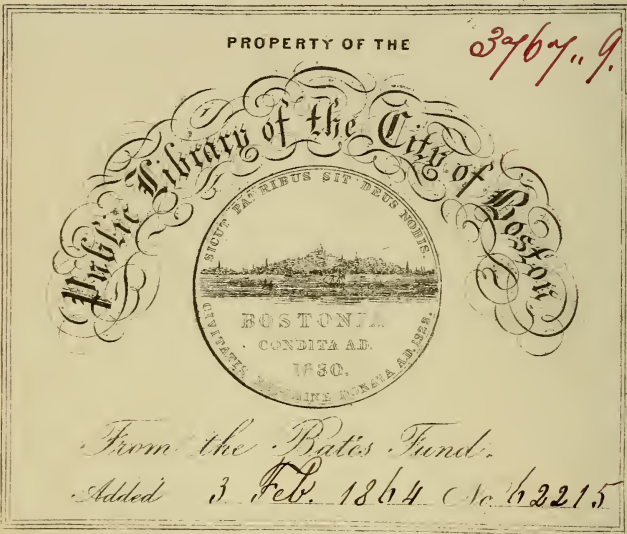 PROPERTY OF THE
3767.. 9.
Public Library of the City of Boston
SICUT PATRIBUS SIT DEUS NOBIS.
BOSTONIA
CONDITA A.D.
1630.
CIVITATIS DONATA A.D. 1822.
From the Bates Fund.
Added 3 Feb. 1864 No 62215